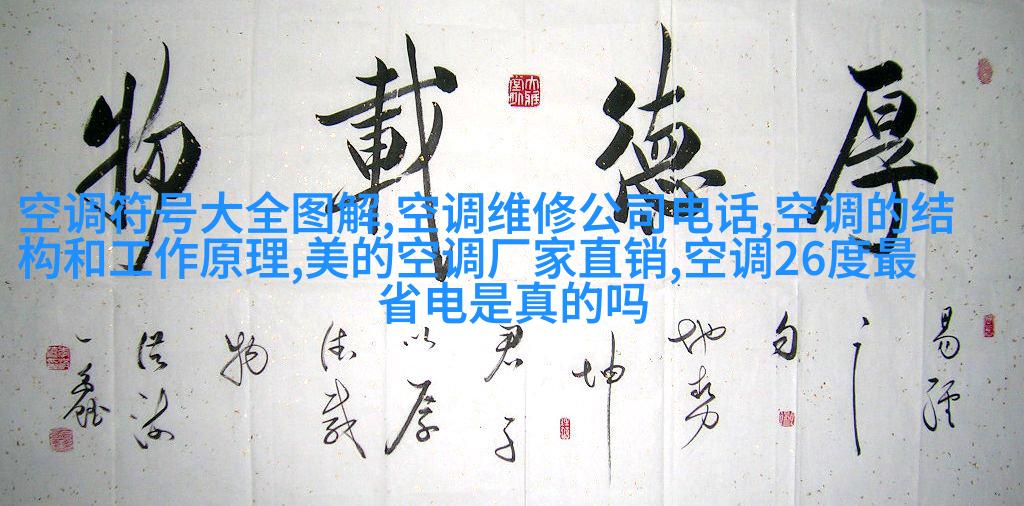 厚德載物
空调符号大全图解,空调维修公司电话,空调的结
构和工作原理,美的空调厂家直销,空调26度最
省电是真的吗
易經
之
句
地勢
坤
君子
以厚
德載
物
一鑫